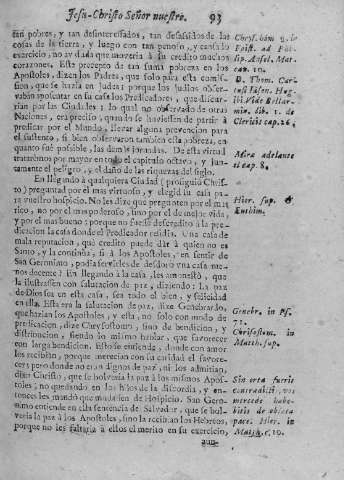 Jesu-Christo Señor nuestro. 93
tan pobres, y tan desinteressados, tan desasidos de las
cosas de la tierra, y luego con tan penoso, y cansado
exercicio, no ay duda que moveria à su credito muchos
coraçones. Este precepto de tan suma pobreza en los
Apostoles, dizen los Padres, que solo para esta comis-
sion, que se hazia en Judea; porque los Judios obser-
vaban aposentar en su casa los Predicadores, que discur-
rian por las Ciudades: lo qual no observado de otras
Naciones, era preciso, quando se huviessen de partir à
predicar por el Mundo, llevar alguna prevencion para
el sustento, si bien observaron tambien esta pobreza, en
quanto fuè possible, las demàs jornadas. De esta virtud
trataremos por mayor en todo el capitulo octavo, y jun-
tamente el peligro, y el daño de las riquezas del siglo.
En llegando à qualquiera Ciudad (prosiguiò Chris-
to) preguntad por el mas virtuoso, y elegid su casa pa-
ra vuestro hospicio. No les dize que pregunten por el mas
rico, no por el mas poderoso, sino por el de mejor vida,
y por el mas bueno; porque no fuesse descredito à la pre-
dicacion la casa donde el Predicador residia. Una casa de
mala reputacion, què credito puede dàr à quien no es
Santo, y la continúa, si à los Apostoles, en sentir de
San Geronimo, podia servirles de desdoro vna casa me-
nos decente? En llegando à la casa, les amonestò, que
la ilustrassen con salutacion de paz, diziendo: La paz
de Dios sea en esta casa, sea todo el bien, y felicidad
en ella. Esta era la salutacion de paz, dize Genebrardo,
que hazian los Apostoles, y esta, no solo con modo de
predicacion, dize Chrysostomo, sino de bendicion, y
distribucion, siendo lo mismo hablar, que favorecer
con larga bendicion. Esto se entiende, donde con amor
los recibian, porque merecian con su caridad el favore-
cer; pero donde no eran dignos de paz, ni los admitian,
dize Christo, que se bolveria la paz à los mismos Apos-
toles; no quedando en las hijos de la discordia, y en-
tonces les mandò que mudassen de Hospicio. San Gero-
nimo entiende en esta sentencia del Salvador, que se bol-
veria la paz à los Apostoles, sino la recibian los Hebreos,
porque no les faltaria à ellos el merito en su exercicio,
aun-
Chrysost. hom.
ad Phi-
lip. Ansel. Mat.
cap. 10.
D. Thom. Car-
Hug.
Vide Bellar-
min. lib. 1. de
Clericis cap. 26.
Mira adelante
el cap. 8.
Hier. sup. &
Euthim.
Genebr. in Ps.
Chrisostom. in
Matth. sup.
Sin erta fueris
contradicti, vos
mercede habe-
bitis de oblata
pace. Hier. in
Matth. c. 10.